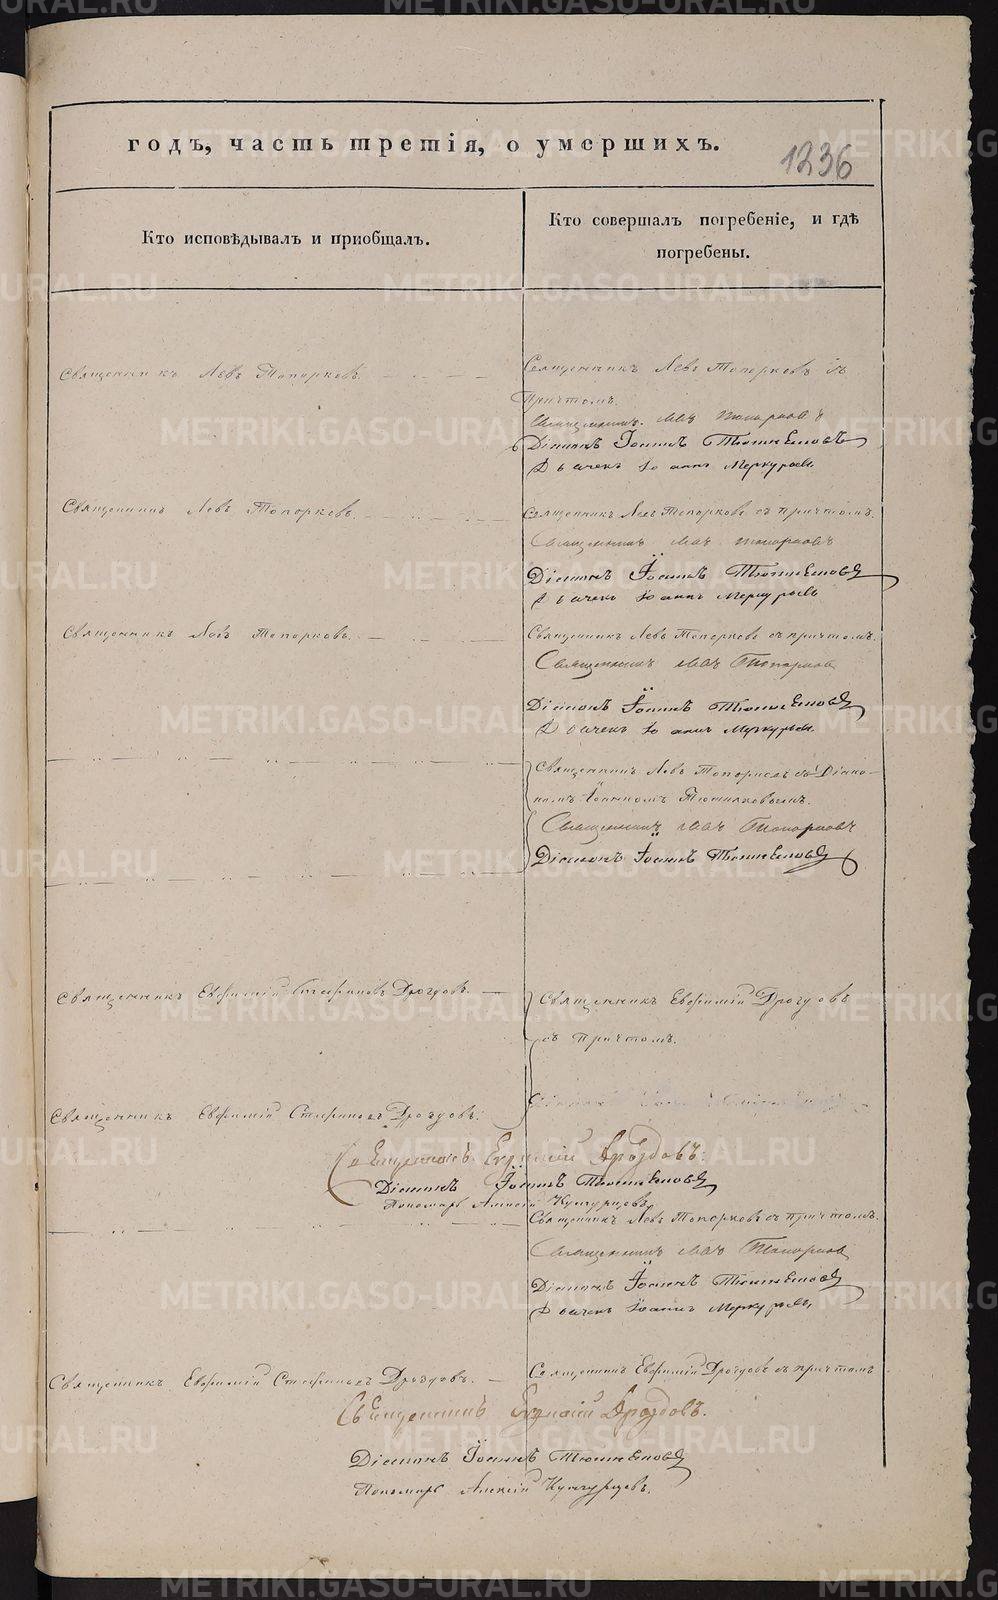 годъ, часть третія, о умершихъ.
1236
Кто исповѣдывалъ и приобщалъ.
Кто совершалъ погребеніе, и гдѣ
погребены.
Священникъ Левъ Топорковъ
Священникъ Левъ Топорковъ съ
Причтомъ.
Священникъ Левъ Топорковъ
Діаконъ Іоаннъ
Дьячекъ Іоаннъ Меркурьевъ
Священникъ Левъ Топорковъ
Священникъ Левъ Топорковъ съ причтомъ.
Священникъ Левъ Топорковъ
Діаконъ Іоаннъ
Дьячекъ Іоаннъ Меркурьевъ
Священникъ Левъ Топорковъ.
Священникъ Левъ Топорковъ съ причтомъ.
Священникъ Левъ Топорковъ
Діаконъ Іоаннъ
Дьячекъ Іоаннъ Меркурьевъ
Священникъ Левъ Топорковъ съ Діако-
номъ Іоанномъ
Священникъ Левъ Топорковъ
Діаконъ Іоаннъ
Священникъ Евфимій Стефановъ Дроздовъ.
Священникъ Евфимій Дроздовъ
съ Причтомъ.
Священникъ Евфимій Стефановъ Дроздовъ.
Священникъ Евфимій Дроздовъ.
Діаконъ Іоаннъ
Пономарь Алексій Кунгурцевъ
Священникъ Левъ Топорковъ съ причтомъ.
Священникъ Левъ Топорковъ
Діаконъ Іоаннъ
Дьячекъ Іоаннъ Меркурьевъ
Священникъ Евфимій Стефановъ Дроздовъ.
Священникъ Евфимій Дроздовъ съ причтомъ
Священникъ Евфимій Дроздовъ.
Діаконъ Іоаннъ
Пономарь Алексій Кунгурцевъ.
METRIKI.GASO-URAL.RU